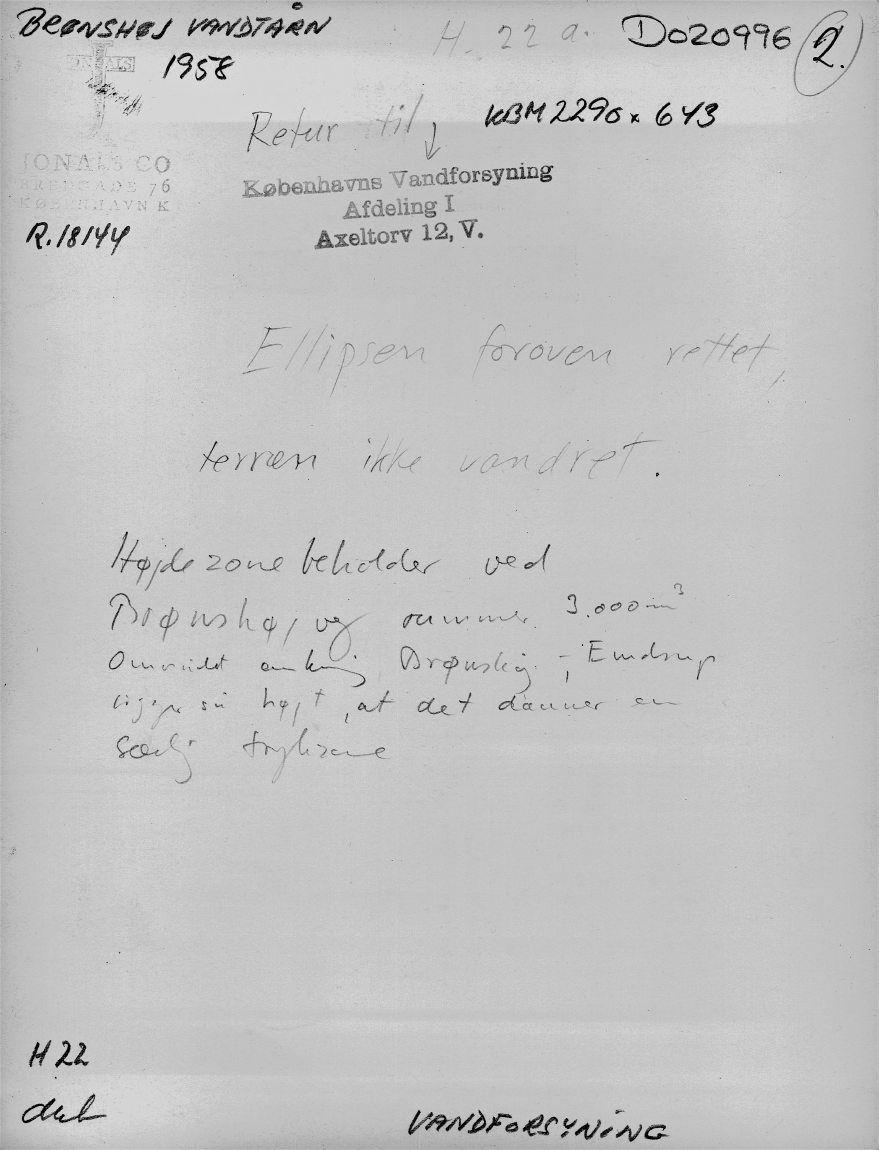 BRØNSHØJ VANDTÅRN
1958
H. 22 a.
DO20996
2.
JONALS CO
BREDGADE 76
KØBENHAVN K
R.18144
Retur til
KBM2290 x 643
Københavns Vandforsyning
Afdeling I
Axeltorv 12, V.
Ellipsen foroven rettet,
terræn ikke vandret.
Højdezonebeholder ved
Brønshøjvej rummer 3.000 m³
Området omkring Brønshøj -, Emdrup
ligger så højt, at det danner en
særlig trykzone
H 22
VANDFORSYNING